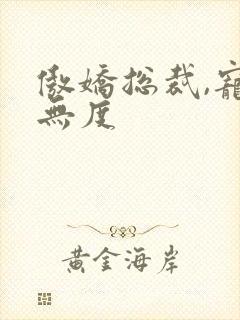 傲嬌总裁,寵
無度
黃金海岸